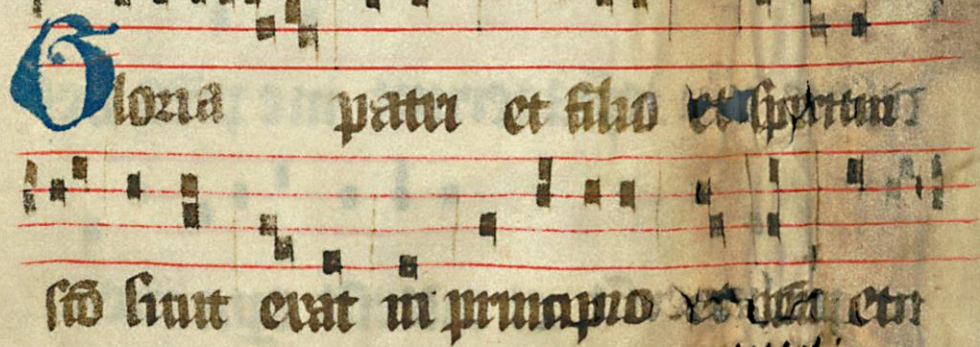 Gloria patri et filio et spiritui
sc̄o sicut erat in principio et nūc et in